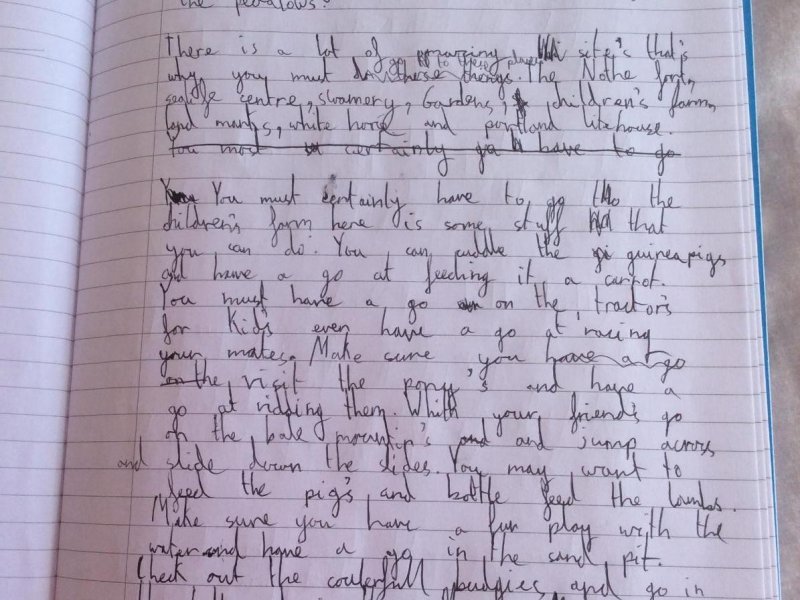 the pedalows.
There is a lot of amazing site's that's
go to these places
why you must these things. The Nothe fort,
sealife centre, swannery, Gardens, children's farm,
land marks, white horse and portland litehouse.
You most certainly go have to go
You must certainly have to go to the
children's farm here is some stuff that
you can do. You can cuddle the guineapigs
and have a go at feeding it a carrot.
You must have a go on the tractor's
for Kid's even have a go at racing
your mates. Make sure you have a go
on the visit the pony's and have a
go at ridding them. With your friend's go
on the bale mountin's and and jump across
and slide down the slides. You may want to
feed the pig's and bottle feed the lambs.
Make sure you have a fun play with the
water and have a go in the sand pit.
Check out the coulerfull budgies and go in